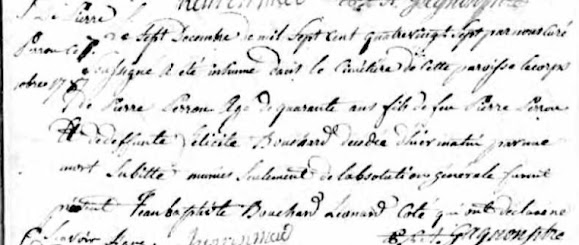 De Pierre
Perron Le 7 Le Sept Decembre de mil Sept cent quatrevingt sept par nous curé
soussigné a été inhumé dans le cimetière de cette paroisse le corps
de Pierre Perron Agé de quarante ans fils de feu Pierre Perron
& de deffunte félicité Bouchard decedé d'hier matin par une
mort Subitte munies Seulement de labsolution generale furent
présent Jean baptiste Bouchard Leonard Coté qui ont declaré ne
Scavoir signer